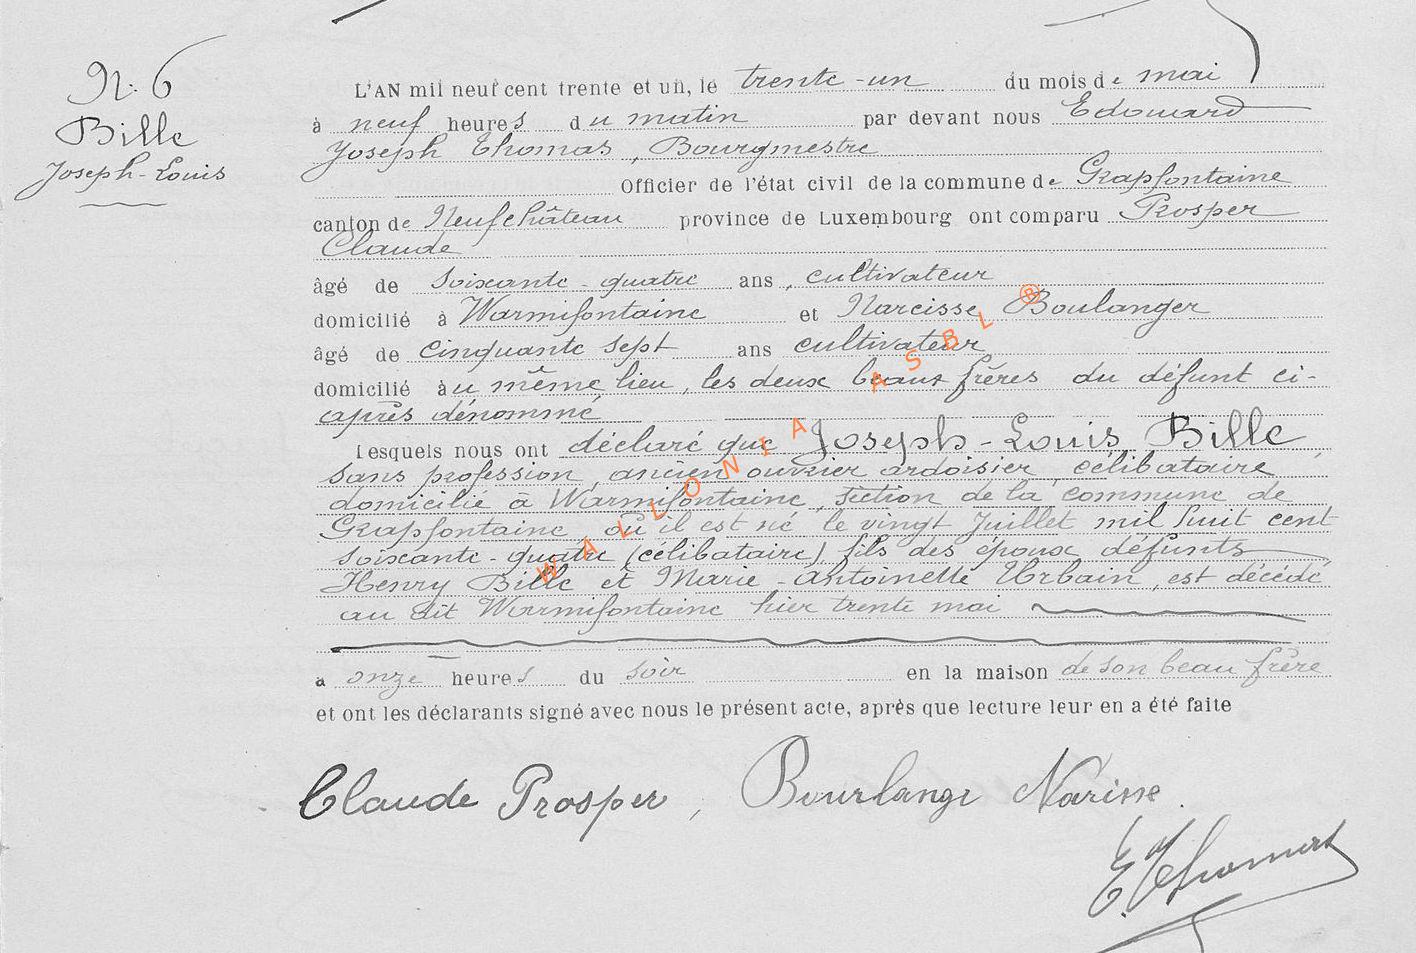 N. 6
Bille
Joseph-Louis
L'AN mil neuf cent trente et un, le trente-un du mois de mai
à neuf heures du matin par devant nous Edouard
Joseph Thomas, Bourgmestre
Officier de l'état civil de la commune de Grapfontaine
canton de Neufchâteau province de Luxembourg ont comparu Prosper
Claude
âgé de soixante-quatre ans, cultivateur
domicilié à Warmifontaine et Narcisse Boulanger
âgé de cinquante sept ans cultivateur
domicilié au même lieu, les deux beaux frères du défunt ci-
après dénommé
Lesquels nous ont déclaré que Joseph-Louis Bille
sans profession, ancien ouvrier ardoisier, célibataire,
domicilié à Warmifontaine, section de la commune de
Grapfontaine où il est né le vingt Juillet mil huit cent
soixante-quatre (célibataire), fils des époux défunts
Henry Bille et Marie-Antoinette Urbain, est décédé
au dit Warmifontaine hier trente mai
à onze heures du soir en la maison de son beau frère
et ont les déclarants signé avec nous le présent acte, après que lecture leur en a été faite
Claude Prosper, Bourlange Narisse.
E. Thomas
WALLONIA ASBL ®